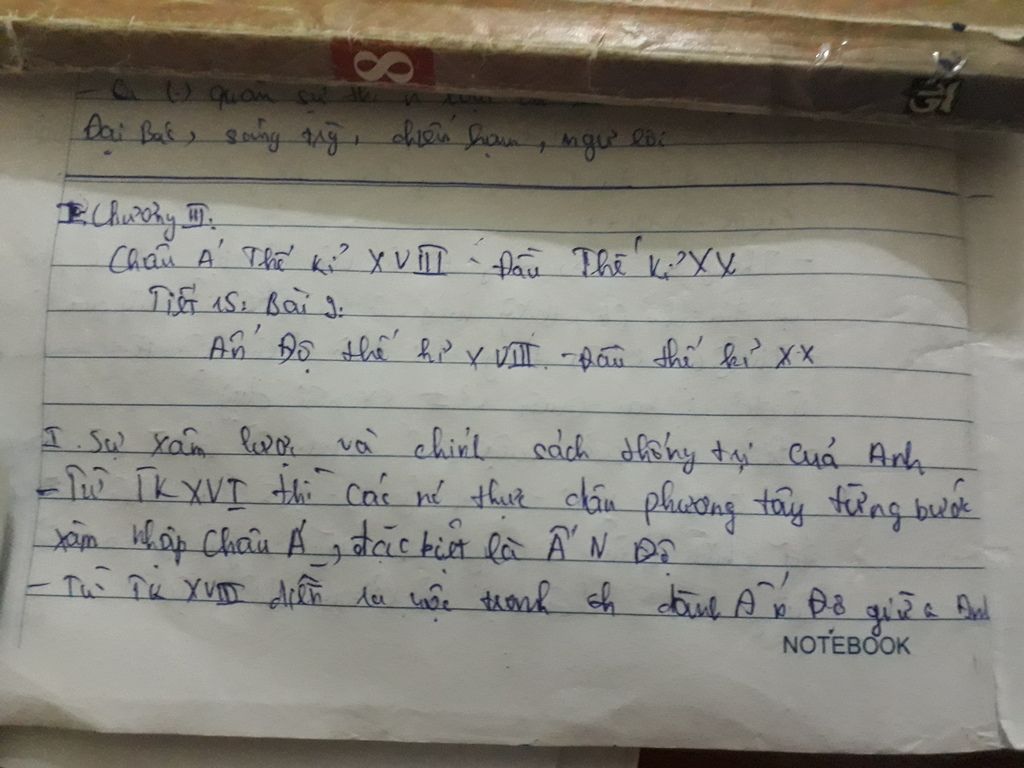 8
- Q (-) quân sự
Đại Bác, súng trường, chiến hạm, ngư lôi
Chương III:
Châu Á Thế kỉ XVIII - Đầu Thế kỉ XX
Tiết 15: Bài 9:
Ấn Độ thế kỉ XVIII - Đầu thế kỉ XX
I. Sự xâm lược và chính sách thống trị của Anh
- Từ TK XVI thì các nc thực dân phương tây từng bước
xâm nhập Châu Á, đặc biệt là ẤN Độ
- Từ TK XVIII diễn ra cuộc tranh ch dành Ấn Độ giữa Anh
NOTEBOOK